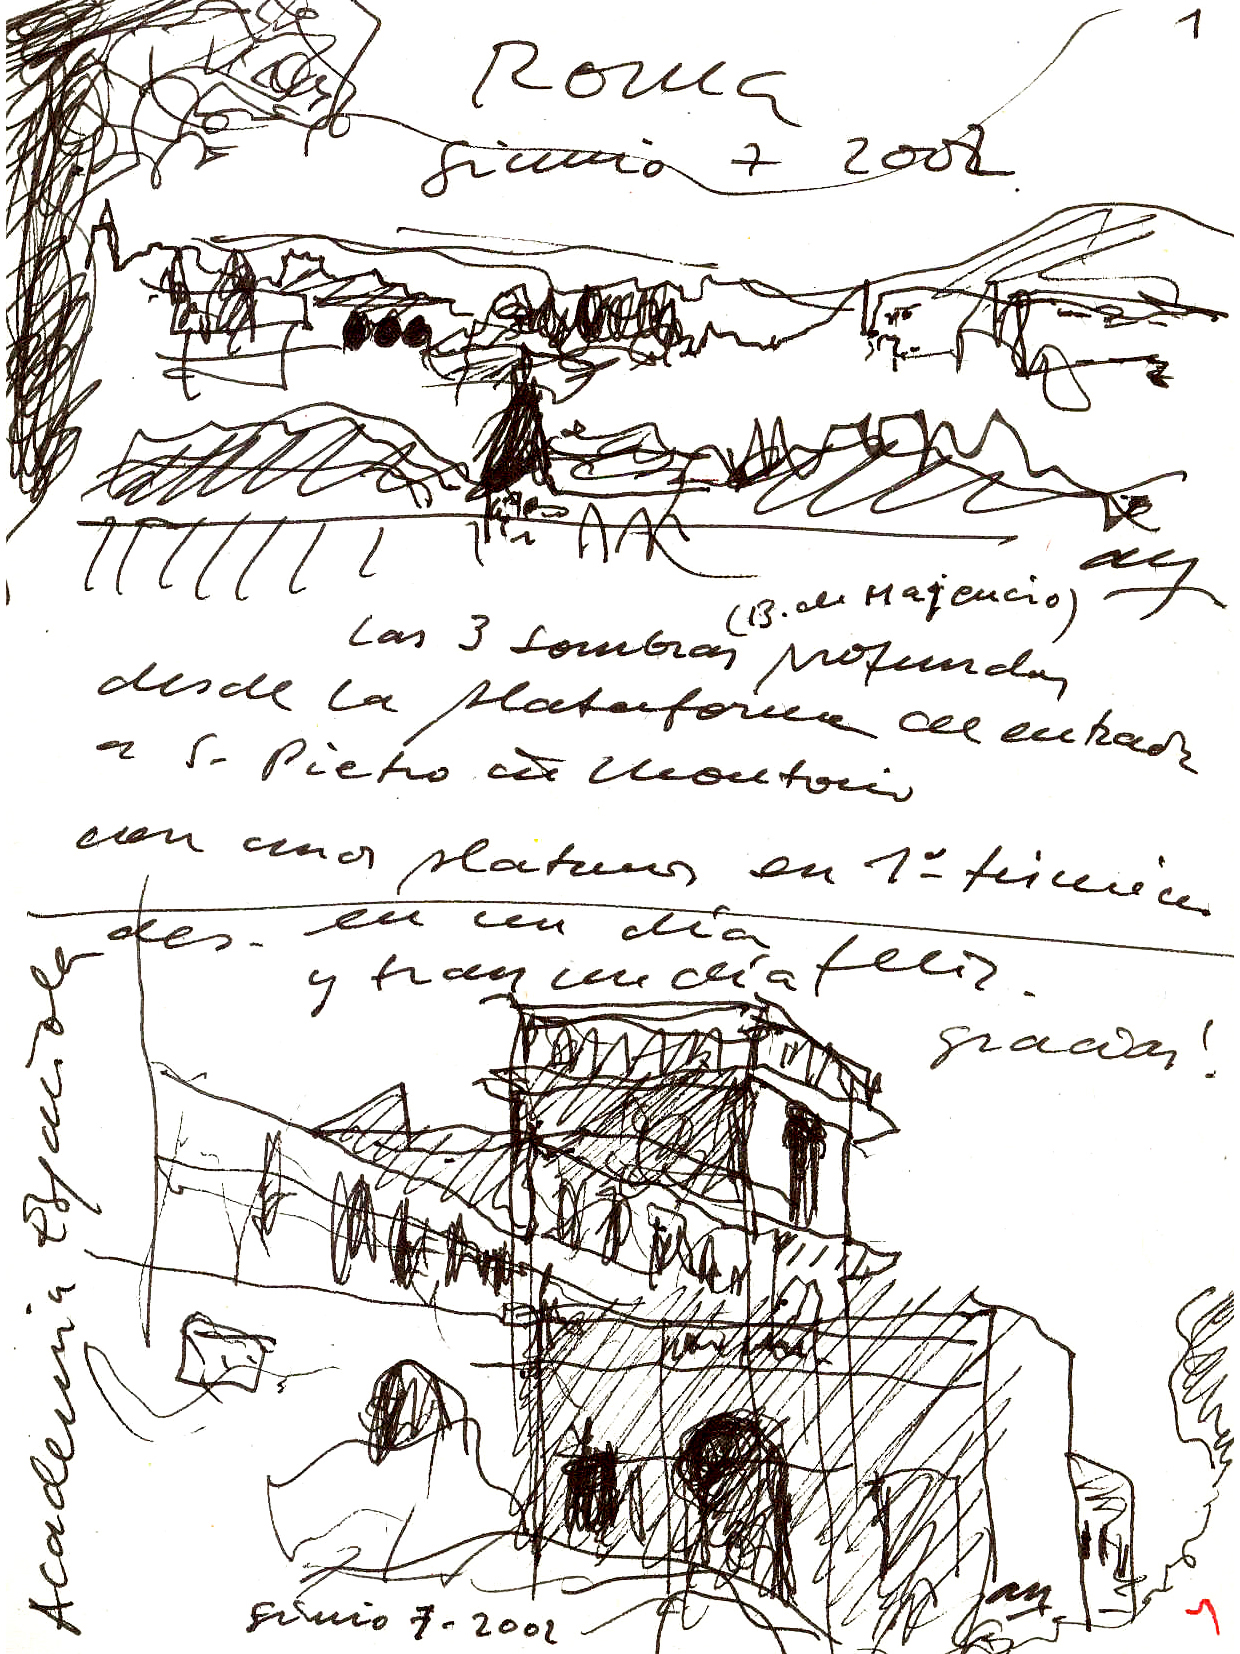 1
Roma
giunio 7 2002
(B. de Majencio)
Las 3 sombras profundas
desde la plataforma de entrada
a S. Pietro in Montorio
con unos platanos en 1º términ
des. en un día
y tran un día feliz.
gracias!
Academia Española
giunio 7-2002